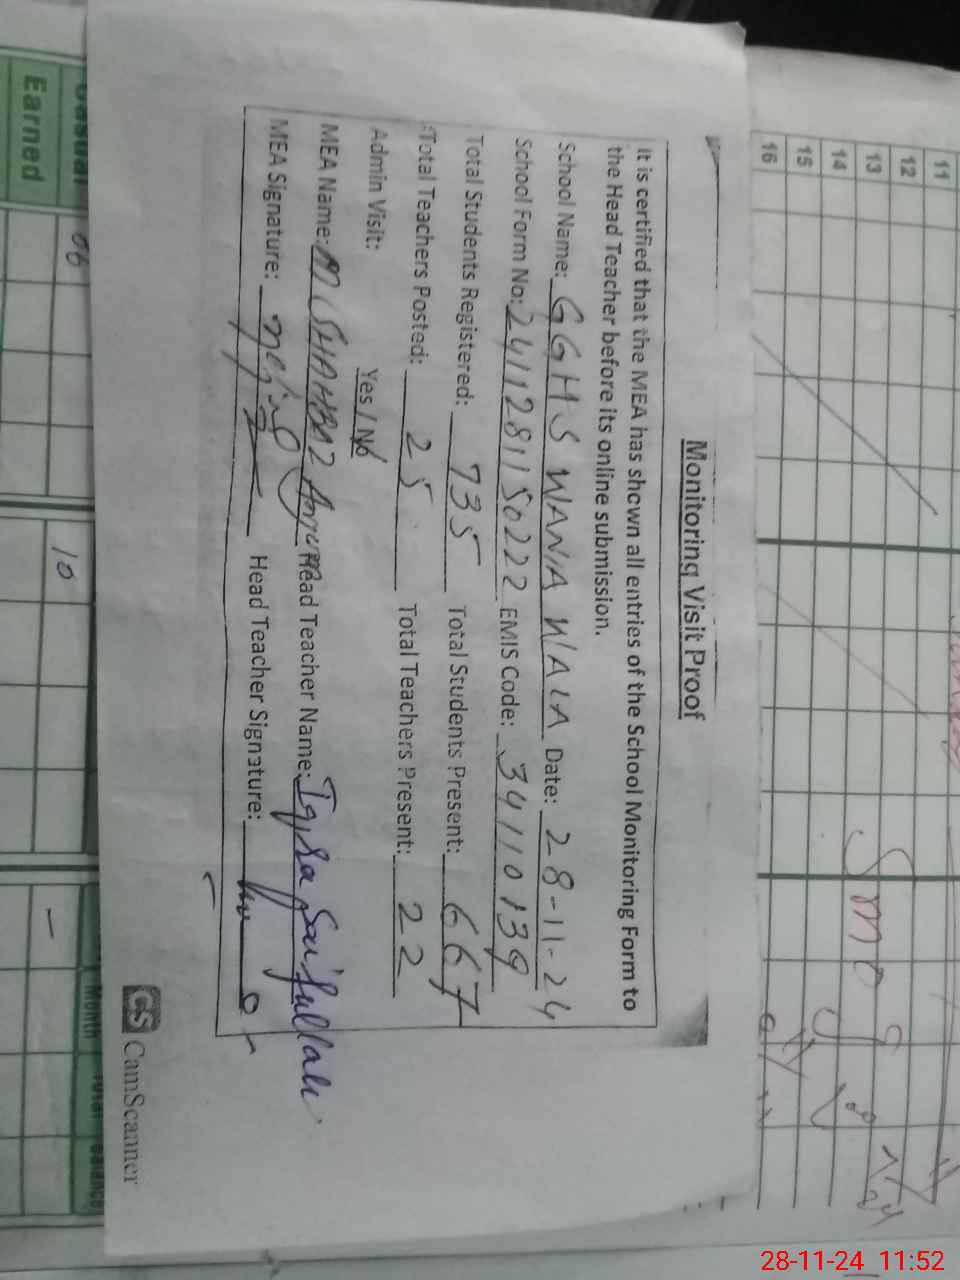 Monitoring Visit Proof
It is certified that the MEA has shown all entries of the School Monitoring Form to
the Head Teacher before its online submission.
School Name: GGHS WANIA WALA Date: 28-11-24
School Form No: 2411281150222 EMIS Code: 34110139
Total Students Registered: 735 Total Students Present: 667
Total Teachers Posted: 25 Total Teachers Present: 22
Admin Visit: Yes / No
MEA Name: M SHAHBAZ Head Teacher Name: Iqra Saifullah
MEA Signature: Head Teacher Signature:
CS CamScanner
11
12
13
14
15
16
Casual
Earned
06
10
Month
Total
Balance
28-11-24 11:52